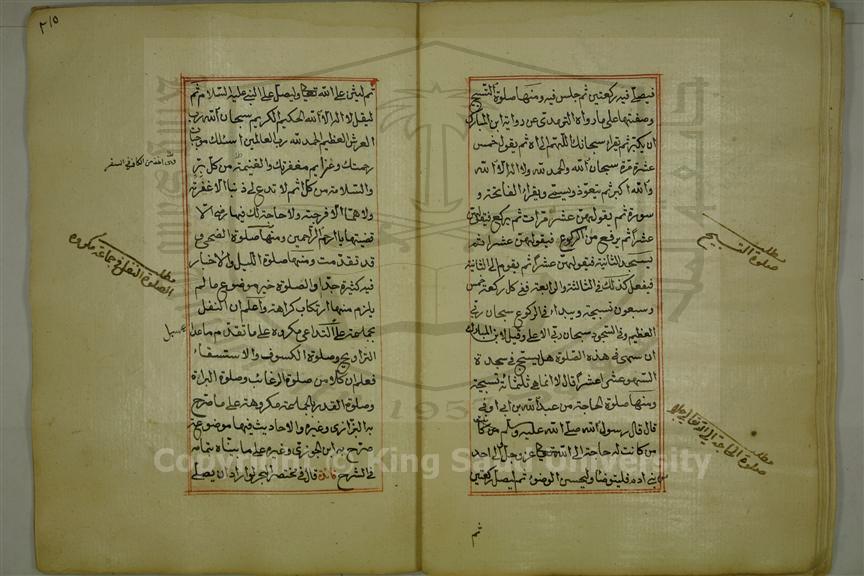 فيصلي فيه ركعتين ثم جلس فيه ومنها صلوة التسبيح
وصفتها على ما رواه الترمذي عن رواية ابن المبارك
ان يكبر ثم يقراء سبحانك اللهم الى اه ثم يقول خمس
عشرة مرة سبحان الله والحمد لله ولا اله الا الله
والله اكبر ثم يتعوذ ويسمي ويقراء الفاتحة و
سورة ثم يقولهن عشر مرات ثم يركع فيقولهن
عشرا ثم يرفع من الركوع فيقولهن عشرا ثم
يسجد الثانية فيقولهن عشرا ثم يقوم الى الثانية
فيفعل كذلك في الثالثة والرابعة ففي كل ركعة خمس
وسبعون تسبيحة ويبداء في الركوع سبحان ربي
العظيم وفي السجود سبحان ربي الاعلى وقيل لابن المبارك
ان سهى في هذه الصلوة هل يسبح في سجدة
السهو عشرا عشرا قال لا انما هي ثلثمائة تسبيحة
ومنها صلوة الحاجة عن عبد الله بن ابي اوفى
قال قال رسول الله صلى الله عليه وسلم من كانت
من كانت له حاجة الى الله تعالى عز وجل الى احد
من بني ادم فليتوضاء وليحسن الوضوء ثم ليصل ركعتين
ثم
مطلب
صلوة التسبيح
مطلب
صلوة الحاجة
٢١٥
ثم ليثن على الله تعالى وليصل على النبي عليه السلام ثم
ليقل لا اله الا الله الحكيم الكريم سبحان الله رب
العرش العظيم الحمد لله رب العالمين اسئلك موجبات
رحمتك وعزايم مغفرتك والغنيمة من كل بر
والسلامة من كل اثم لا تدع لي ذنبا الا غفرته
ولا هما الا فرجته ولا حاجة لك فيها رضا الا
قضيتها يا ارحم الراحمين ومنها صلوة الضحى و
قد تقدمت ومنها صلوة الليل والاخبار
فيه كثيرة جدا والصلوة خير موضوع ما لم
يلزم منها ارتكاب كراهة واعلم ان النفل
بجماعة على التداعي مكروه على ما تقدم ما عدا
التراويح وصلوة الكسوف والاستسقاء
فعلم ان كلا من صلوة الرغائب وصلوة البراءة
وصلوة القدر بالجماعة مكروهة على ما صرح
به البزازي وغيره والاحاديث فيها موضوعة
صرح به ابن الجوزي وغيره على ما بيناه بتمامه
في الشرح فائدة قال في مختصر البحر لو اراد ان يصلي
مطلب
الصلوة النفل في جماعة مكروه